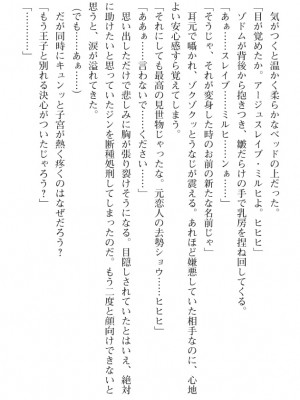 気がつくと温かく柔らかなベッドの上だった。
「目が覚めたか。アージュスレイブ・ミルヒよ、ヒヒヒ」
ゾドムが背後から抱きつき、皺だらけの手で乳房を捏ね回してくる。
「あぁ……スレイブ・ミルヒ……ン……」
「そうじゃ、それが変身した時のお前の新たな名前じゃ」
耳元で囁かれ、ゾクゾクっとうなじが震える。あれほど嫌悪していた相手なのに、心地
よい安心感すら覚えてしまう。
「それにしても最高の見世物じゃったな。元恋人の去勢ショウ……ヒヒヒ」
「ああぁ……言わないで……ください……」
思い出しただけで悲しみに胸が張り裂けそうになる。目隠しされていたとはいえ、絶対
に助けたいと思っていたジンを断種処刑してしまったのだ。もう二度と顔向けできないと
思うと、涙が溢れてきた。
（でも……あぁ……）
だが同時にキュンッと子宮が熱く疼くのはなぜだろう？
「もう王子と別れる決心がついたじゃろう？」
「……………はい……」